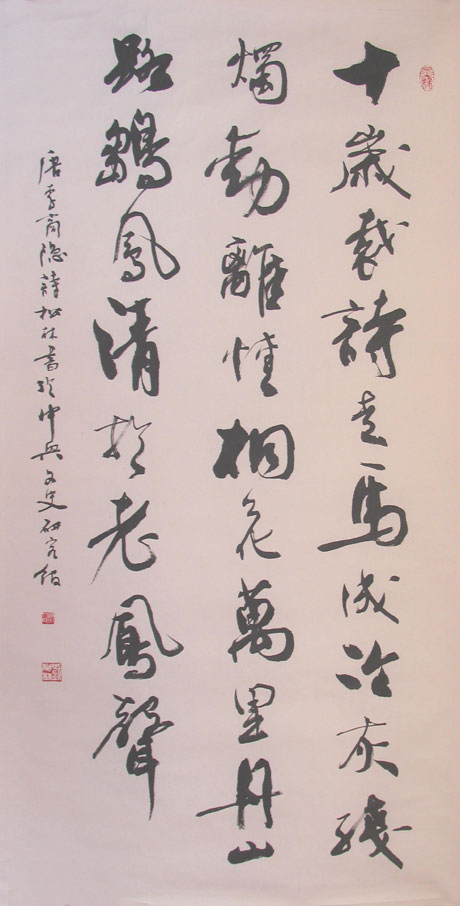 十歲裁詩走馬成冷灰殘
燭動離情桐花萬里丹山
路鶵鳳清於老鳳聲
唐李商隐詩松林書於中央文史研究館